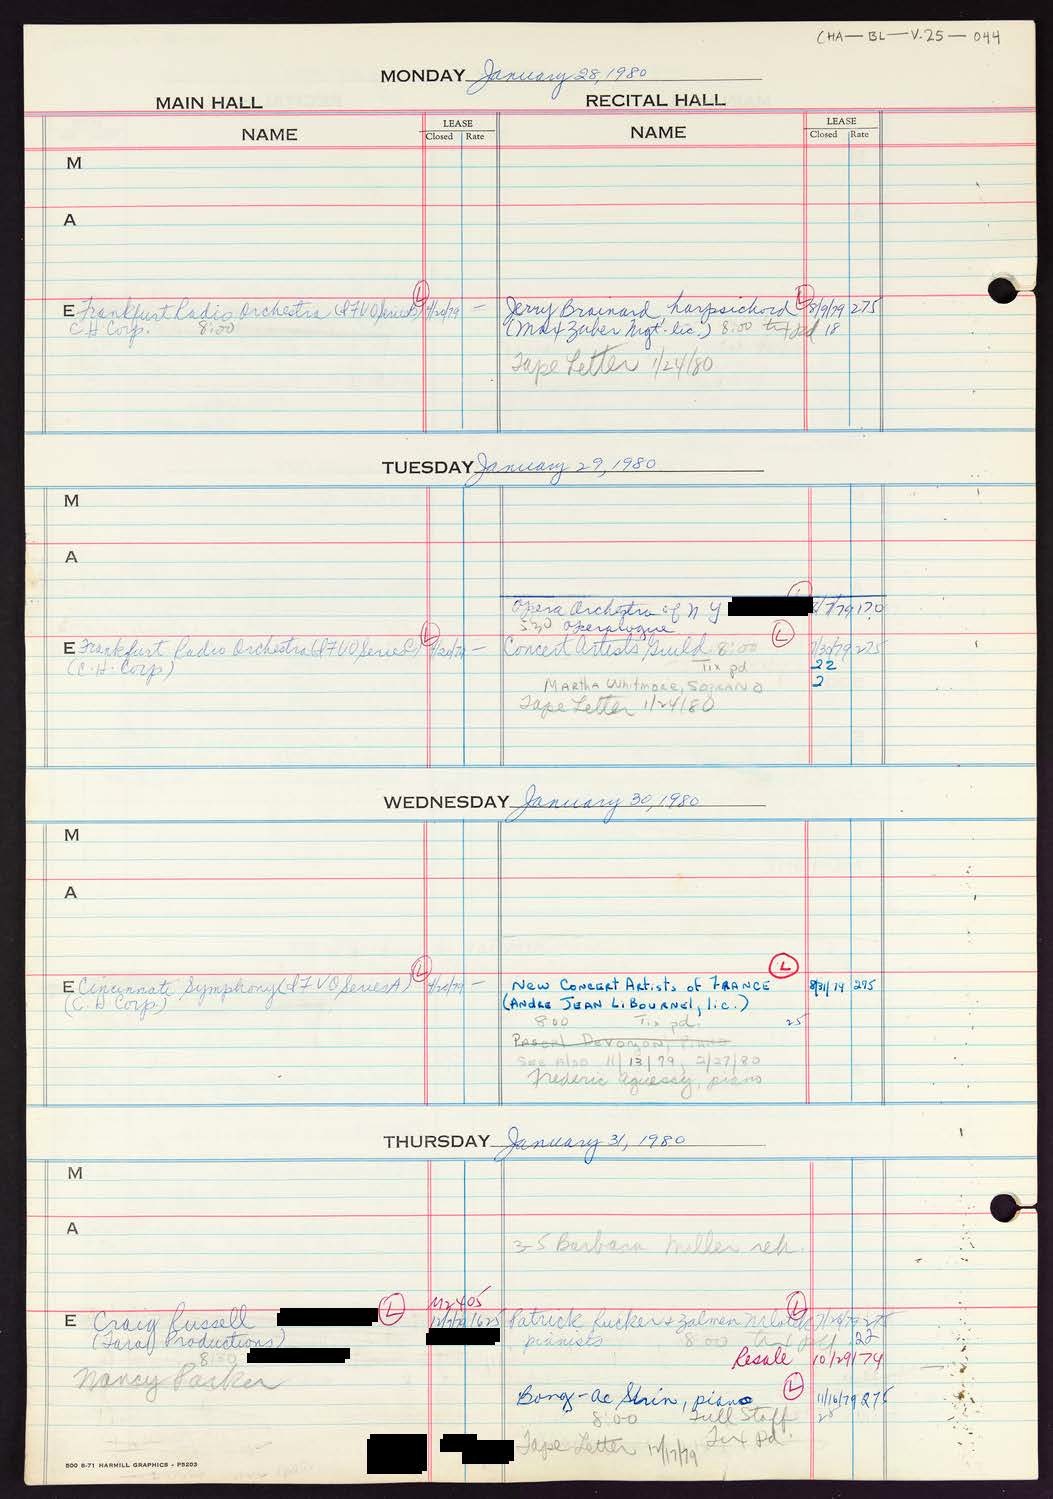 CHA-BL-V.25-044
MONDAY January 28, 1980
MAIN HALL RECITAL HALL
NAME LEASE Closed Rate NAME LEASE Closed Rate
M
A
E Frankfurt Radio Orchestra (IFVO Series B) L 4/20/79 —
C H Corp. 8:00
Jerry Brainard, harpsichord L 8/9/79 275
(Max Zuber Mgt. lic.) 8:00 tix pd 18
Tape Letter 1/24/80
TUESDAY January 29, 1980
M
A
Opera Orchestra of N Y L /7/79 170
530 Operalogue
E Frankfurt Radio Orchestra (IFVO Series C) L 4/20/79 —
(C.H. Corp)
Concert Artists Guild 8:00 L 7/30/79 275
Tix pd 22
Martha Whitmore, Soprano 2
Tape Letter 1/24/80
WEDNESDAY January 30, 1980
M
A
E Cincinnati Symphony (IFVO Series A) L 4/20/79 —
(C.H Corp.)
L
New Concert Artists of France 8/31/79 275
(Andre Jean Libournel, lic.)
8:00 Tix pd. 25
Pascal Devoyon, Piano
See also 11/13/79, 2/27/80
Frederic Aguessy, piano
THURSDAY January 31, 1980
M
A
3-5 Barbara Miller reh.
E Craig Russell L M2405
(Taral Productions)
8:00
Nancy Parker
Patrick Rucker + Zalmen Mlotek L 275
pianists 8:00 tix pd 22
Resale 10/29/79
Bong-Ae Shin, piano L 11/16/79 275
8:00 Full Staff 20
Tape Letter 12/17/79 Tix Pd.
500 8-71 HARMILL GRAPHICS - P5203